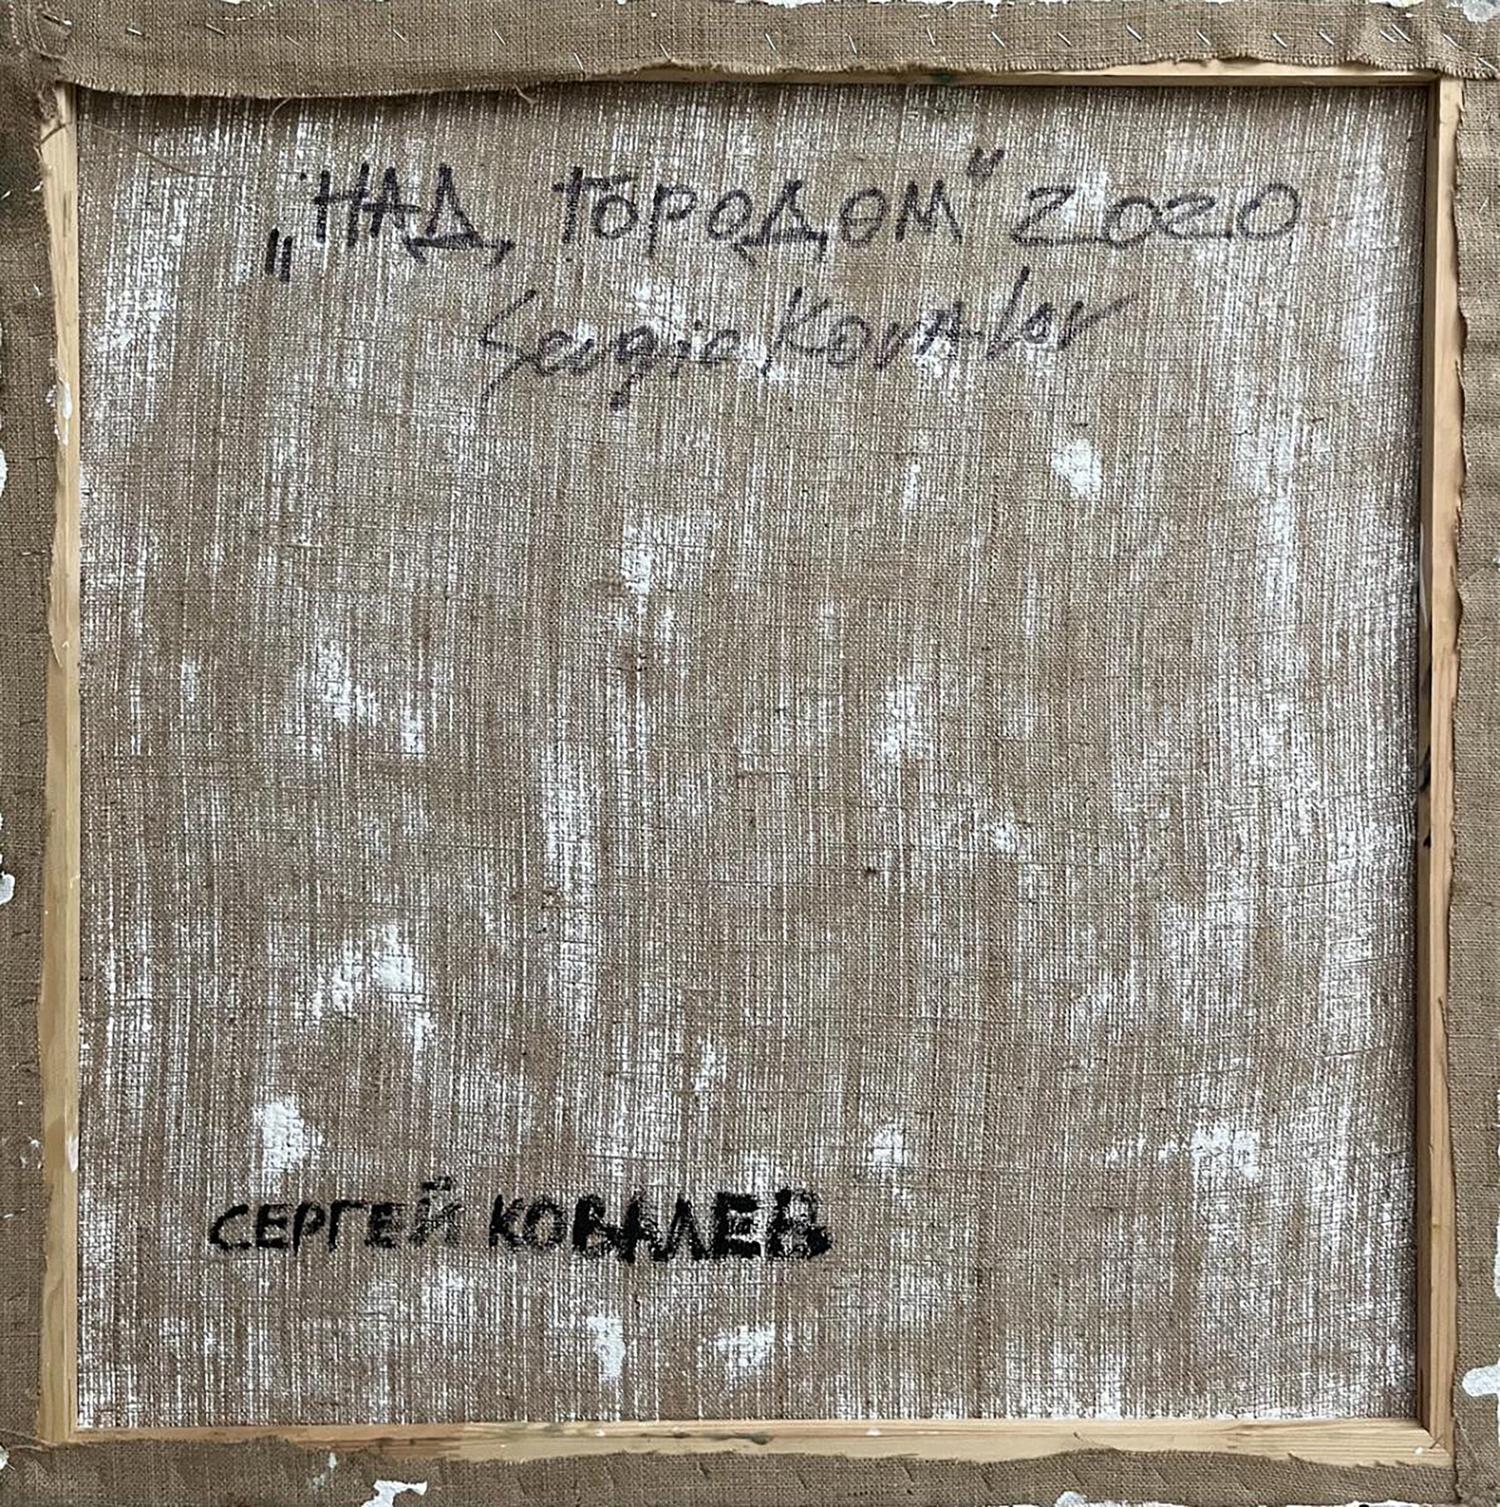 „НАД ГОРОДОМ" 2020
Sergie Kovalov
СЕРГЕЙ КОВАЛЕВ